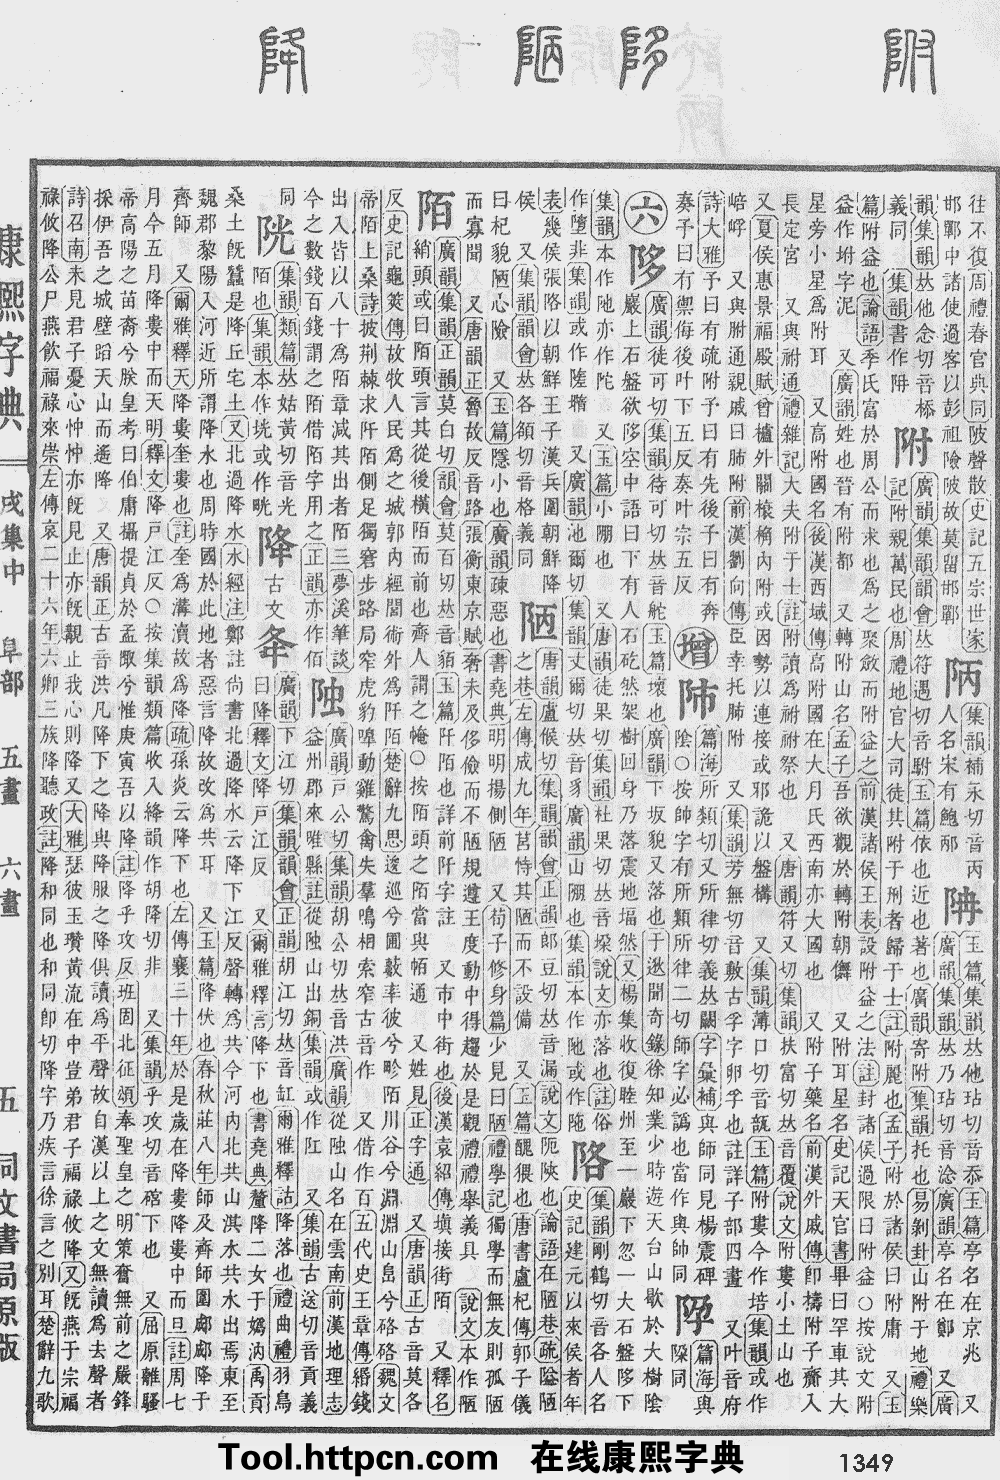 降 陋 陊 附
往不復周禮春官典同陂聲散史記五宗世家
邯鄲中諸使過客以彭祖險陂故莫畱邯鄲
陃
集韻補永切音丙
人名宋有鮑邴
玉篇集韻𠀤他玷切音忝玉篇亭名在京兆 又
廣韻集韻𠀤乃玷切音淰廣韻亭名在鄭 又廣
韻集韻𠀤他念切音㮇
義同 集韻書作阩
附
廣韻集韻韻會𠀤符遇切音駙玉篇依也近也著也廣韻寄附集韻托也易剝卦山附于地禮樂
記附親萬民也周禮地官大司徒其附于刑者歸于士註附麗也孟子附於諸侯曰附庸 又玉
篇附益也論語季氏富於周公而求也爲之聚斂而附益之前漢諸侯王表設附益之法註封諸侯過限曰附益○按說文附
益作坿字泥 又廣韻姓也晉有附都 又轉附山名孟子吾欲觀於轉附朝儛 又附耳星名史記天官書畢曰罕車其大
星旁小星爲附耳 又高附國名後漢西域傳高附國在大月氏西南亦大國也 又附子藥名前漢外戚傳卽擣附子齎入
長定宮 又與祔通禮雜記大夫附于士註附讀爲祔祔祭也 又唐韻符又切集韻扶富切𠀤音覆說文附婁小土山也
又夏侯惠景福殿賦曾櫨外關榱桷內附或因勢以連接或邪詭以盤構 又集韻薄口切音瓿玉篇附婁今作培集韻或作
峊㟊 又與胕通親戚曰肺附前漢劉向傳臣幸托肺附 又集韻芳無切音敷古孚字卵孚也註詳子部四畫 又叶音府
詩大雅予曰有疏附予曰有先後予曰有奔
奏予曰有禦侮後叶下五反奏叶宗五反
增
篇海所類切又所律切義𠀤闕字彙補與師同見楊震碑
陰○按帥字有所類所律二切師字必譌也當作與帥同
篇海與
隟同
六
陊
廣韻徒可切集韻待可切𠀤音舵玉篇壞也廣韻下坂貌又落也于逖聞奇錄徐知業少時遊天台山歇於大樹陰
巖上石盤欲陊空中語曰下有人石矻然架樹回身乃落震地塌然又楊集收復睦州至一巖下忽一大石盤陊下
集韻本作阤亦作陀 又玉篇小陊也 又唐韻徒果切集韻杜果切𠀤音垜說文亦落也註俗
作墮非集韻或作陸墮 又廣韻池爾切集韻丈爾切𠀤音豸廣韻山陊也集韻本作阤或作陁
洛
陋
集韻剛鶴切音各人名
史記建元以來侯者年
表幾侯張陋以朝鮮王子漢兵圍朝鮮降
侯 又集韻韻會𠀤各頟切音格義同
唐韻盧候切集韻韻會正韻郎豆切𠀤音漏說文阨陝也論語在陋巷疏隘陋
之巷左傳成九年莒恃其陋而不設備 又玉篇醜猥也唐書盧杞傳郭子儀
曰杞貌陋心險 又玉篇隱小也廣韻疎惡也書堯典明明揚側陋 又荀子修身篇少見曰陋禮學記獨學而無友則孤陋
而寡聞 又唐韻正魯故反音路張衡東京賦奢未及侈儉而不陋規遵王度動中得趨於是觀禮禮舉義具 說文本作陋
陌
廣韻集韻正韻莫白切韻會莫百切𠀤音貊玉篇阡陌也詳前阡字註 又市中街也後漢袁紹傳塡接街陌 又釋名
綃頭或曰陌頭言其從後橫陌而前也齊人謂之㡋○按陌頭之陌當與帞通 又姓見正字通 又唐韻正古音莫各
反史記龜筴傳故牧人民爲之城郭內經閭術外爲阡陌楚辭九思逡巡兮圃藪率彼兮畛陌川谷兮淵淵山峊兮硌硌魏文
帝陌上桑詩披荆棘求阡陌側足獨窘步路局窄虎豹嘷動雞驚禽失羣鳴相索窄古音作 又借作百五代史王章傳緡錢
出入皆以八十爲陌章減其出者陌三夢溪筆談
今之數錢百錢謂之陌借陌字用之正韻亦作佰
䧆
廣韻戸公切集韻胡公切𠀤音洪廣韻從䧆山名在雲南前漢地理志
益州郡來唯縣註從䧆山出銅集韻或作仜 又集韻古送切音貢義
同
集韻類篇𠀤姑黃切音光
陌也集韻本作垙或作䀕
降
古文
夅
廣韻下江切集韻韻會正韻胡江切𠀤音缸爾雅釋詁降落也禮曲禮羽鳥
曰降釋文降戸江反 又爾雅釋言降下也書堯典釐降二女于嬀汭禹貢
桑土旣蠶是降丘宅土又北過降水水經注鄭註尚書北過降水云降下江反聲轉爲共今河內北共山淇水共水出焉東至
魏郡黎陽入河近所謂降水也周時國於此地者惡言降故改爲共耳 又玉篇降伏也春秋莊八年師及齊師圍郕郕降于
齊師 又爾雅釋天降婁奎婁也註奎爲溝瀆故爲降疏孫炎云降下也左傳襄三十年於是歲在降婁降婁中而旦註周七
月今五月降婁中而天明釋文降戸江反○按集韻類篇收入絳韻作胡降切非 又集韻乎攻切音䃔下也 又屈原離騷
帝高陽之苗裔兮朕皇考曰伯庸攝提貞於孟陬兮惟庚寅吾以降註降乎攻反班固北征頌奉聖皇之明策奮無前之嚴鋒
採伊吾之城壁蹈天山而遙降 又唐韻正古音洪凡降下之降與降服之降俱讀爲平聲故自漢以上之文無讀爲去聲者
詩召南未見君子憂心忡忡亦旣見止亦旣覯止我心則降又大雅瑟彼玉瓚黃流在中豈弟君子福祿攸降又旣燕于宗福
祿攸降公尸燕飮福祿來崇左傳哀二十六年六卿三族降聽政註降和同也和同卽切降字乃疾言徐言之別耳楚辭九歌
康熙字典 戌集中 阜部 五畫 六畫 五 同文書局原版
Tool.httpcn.com 在线康熙字典
1349